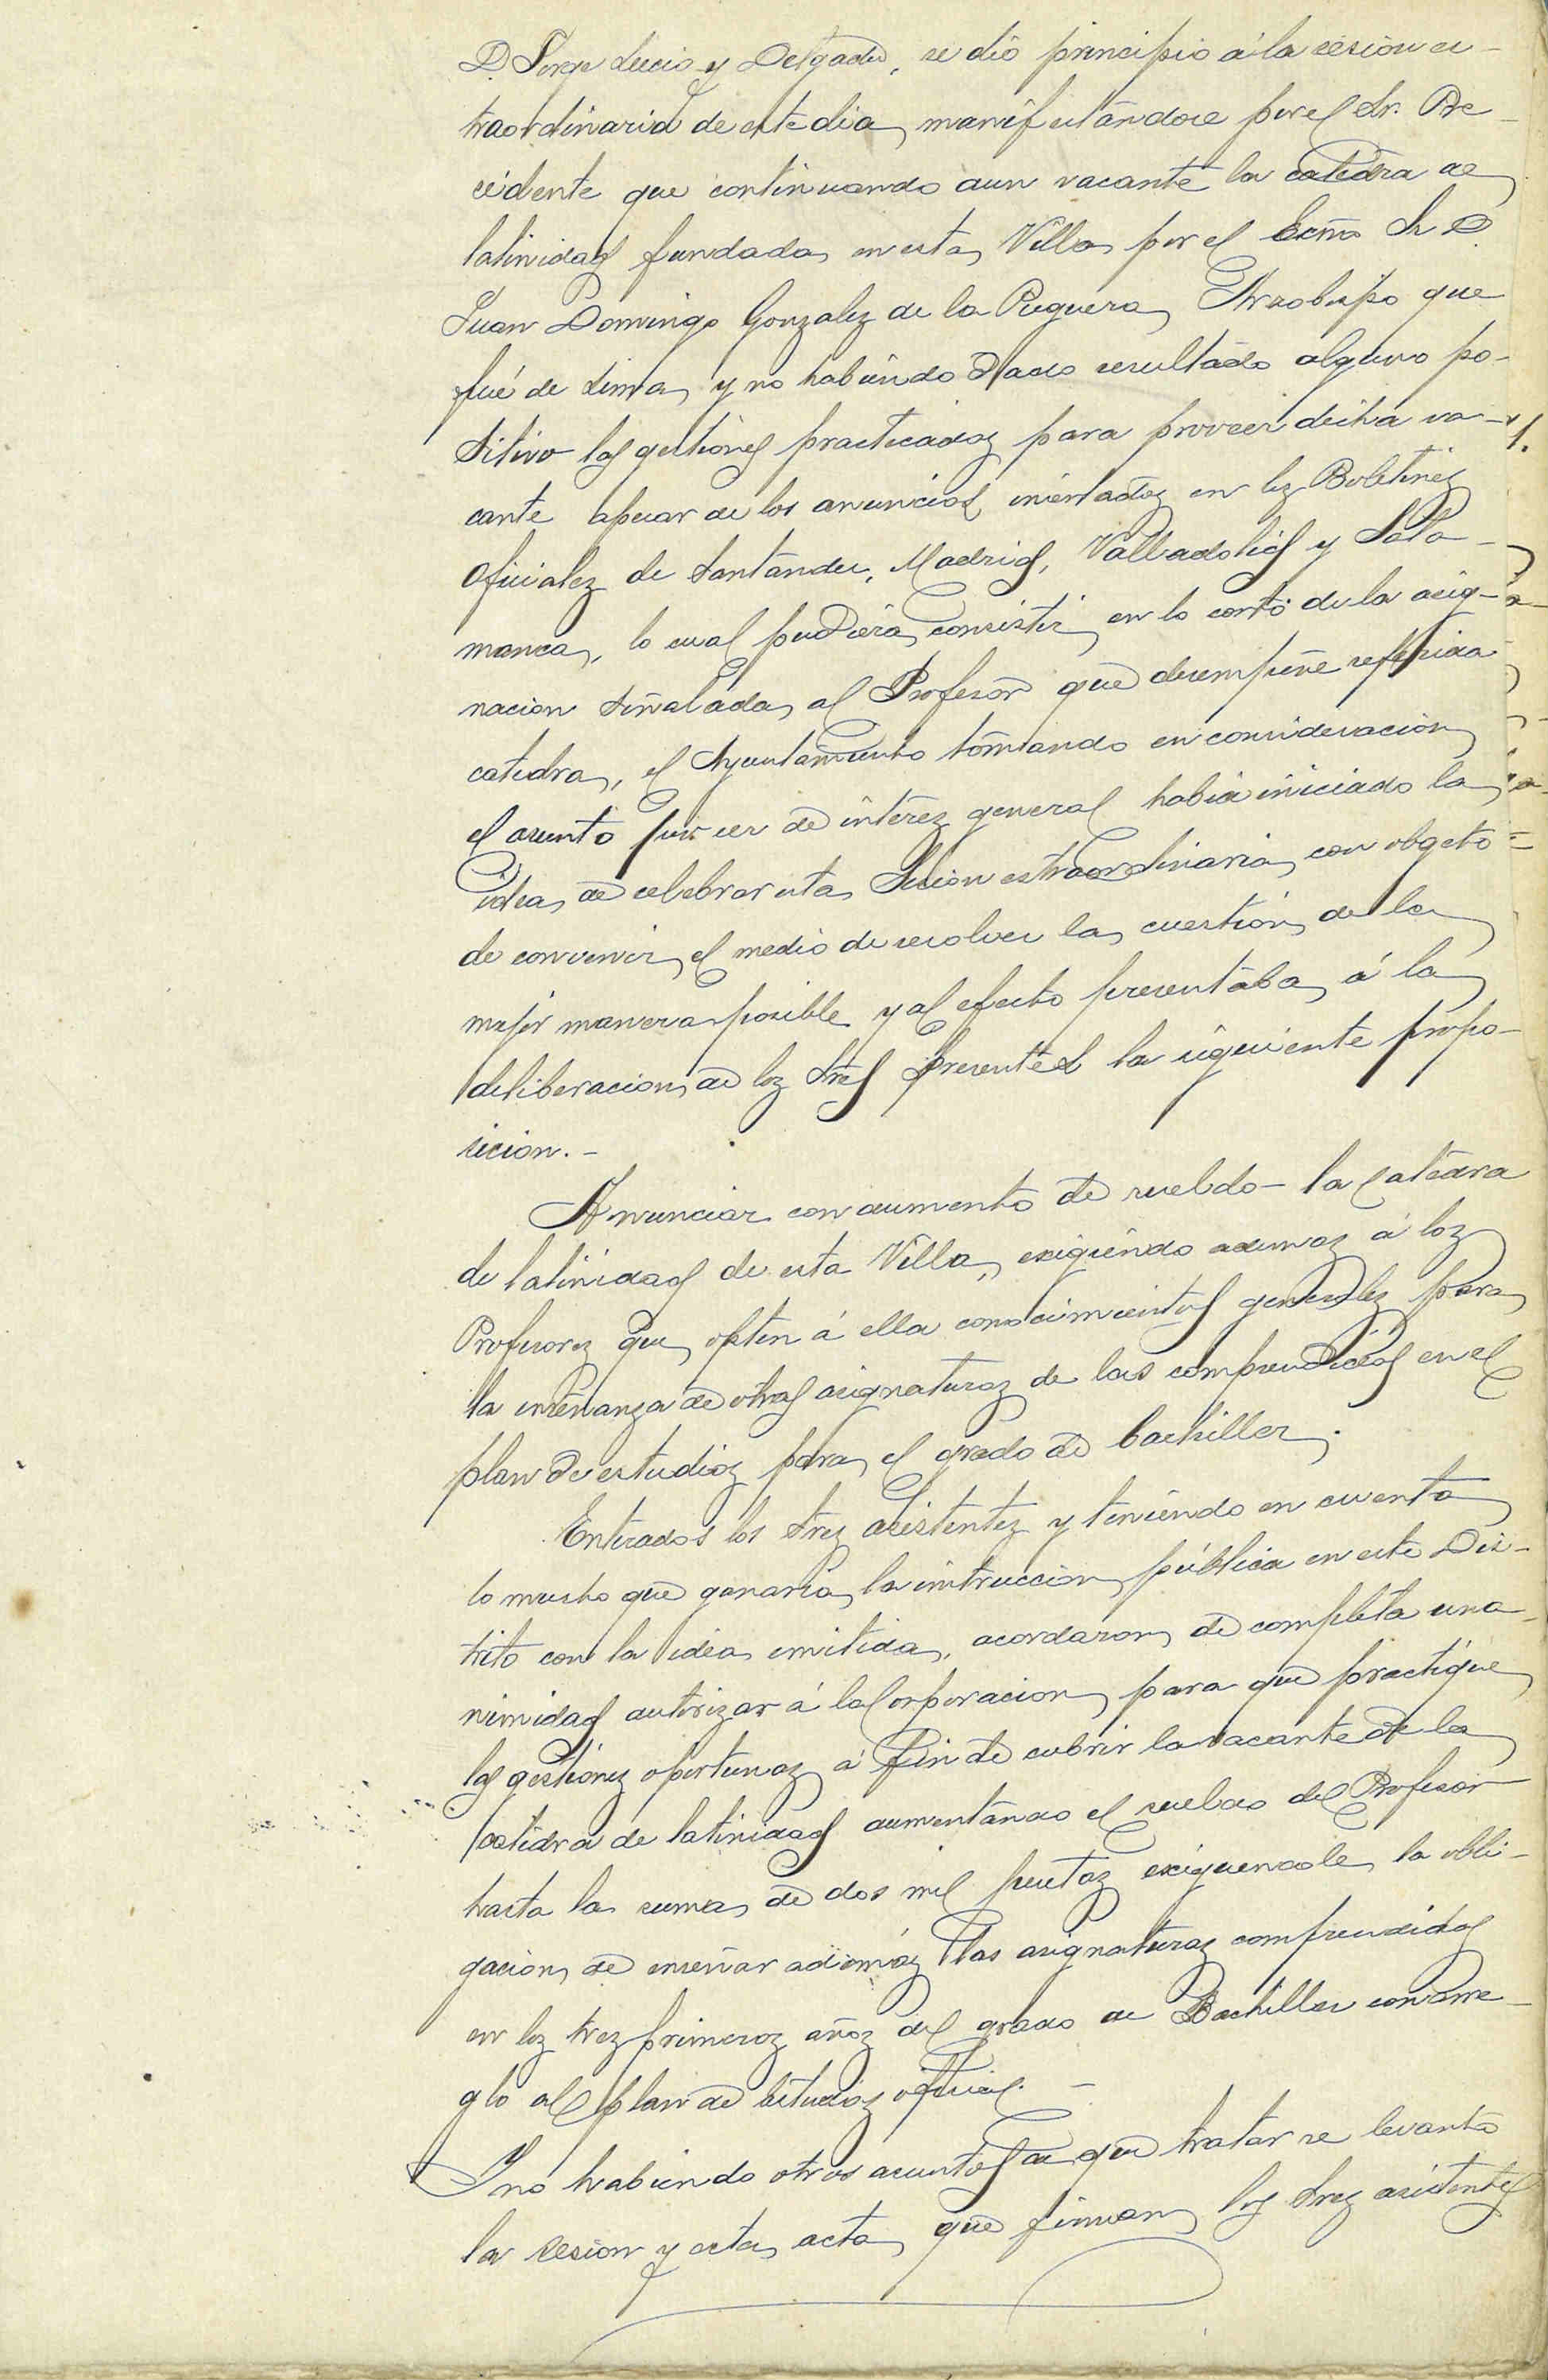 D. Jorge Lecio y Delgado, se dió principio á la sesion es-
traordinaria de este dia, manifestándose por el Sr. Pre-
cidente que continuando aun vacante la catedra de
latinidad fundada en esta Villa por el Ecmo Sr D.
Juan Domingo Gonzalez de la Reguera, Arzobispo que
fué de Lima, y no habiendo dado resultado alguno po-
sitivo las gestiones practicadas para proveer dicha va-
cante apesar de los anuncios insertados en los Boletines
oficiales de Santander, Madrid, Valladolid y Sala-
manca, lo cual pudiera consistir en lo corto de la asig-
nacion señalada al Profesor que desempeñe referida
catedra, el Ayuntamiento tomando en consideracion
el asunto por ser de interez general habia iniciado la
idea de celebrar esta Sesion estraordinaria con obgeto
de convenir el medio de resolver la cuestion de la
mejor manera posible y al efecto presentaba á la
deliberacion de los Sres presentes la siguiente propo-
sicion.-
Anunciar con aumento de sueldo la Catedra
de latinidad de esta Villa, exigiendo ademas á los
Profesores que opten á ella conocimientos generales para
la enseñanza de otras asignaturas de las comprendidas en el
plan de estudios para el grado de bachiller.
Enterados los Sres asistentes y teniendo en cuenta
lo mucho que ganaria la instruccion pública en este Dis-
trito con la idea emitida, acordaron de completa una-
nimidad autorizar á la Corporacion para que practique
las gestiones oportunas á fin de cubrir la vacante de la
Catedra de latinidad aumentando el sueldo del Profesor
hasta la suma de dos mil pesetas exiguendole la obli-
gacion de enseñar ademas las asignaturas comprendidas
en los tres primeros años del grado de Bachiller con arre-
glo al plan de Estudios oficial. -
Y no habiendo otros asuntos de que tratar se levanta
la sesion y esta acta que firman los Sres asistentes